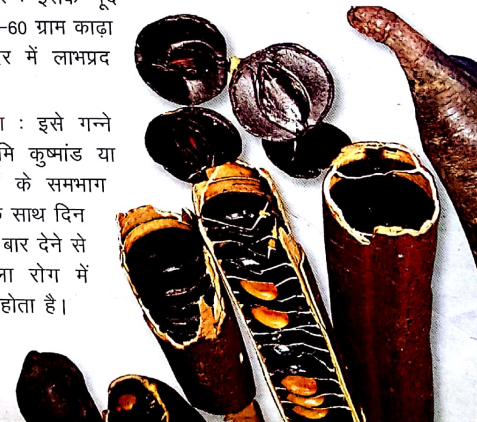 –60 ग्राम काढ़ा
र में लाभप्रद
: इसे गन्ने
मि कुष्मांड या
के समभाग
साथ दिन
बार देने से
ला रोग में
होता है।